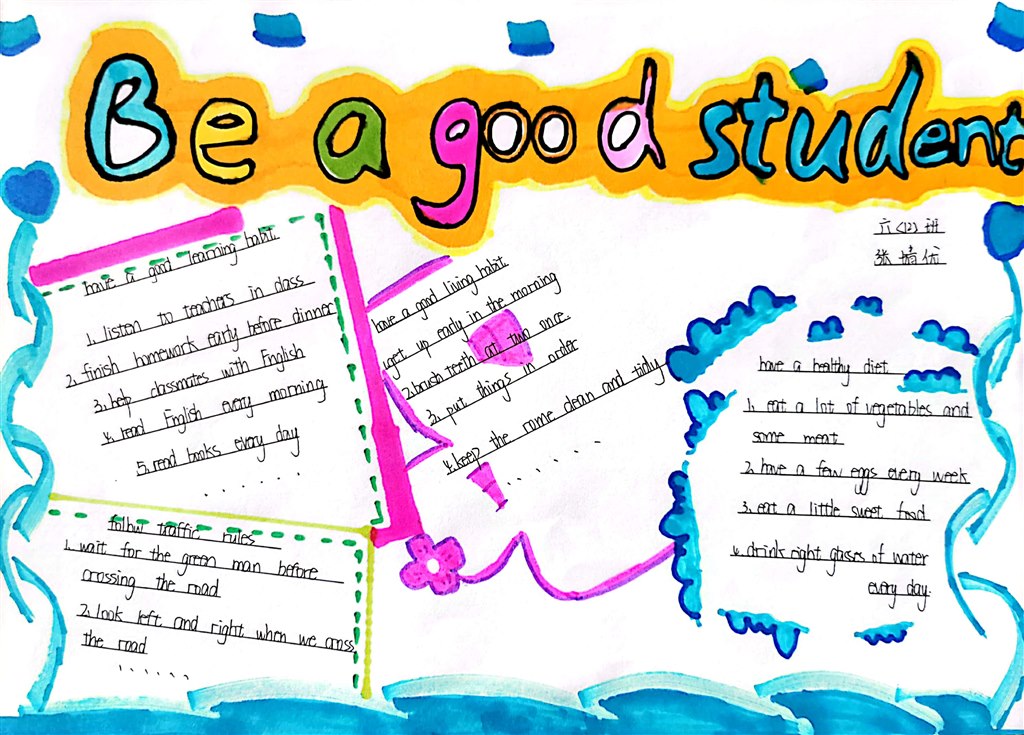 Be a good student
六(12)班
张婧优
have a good learning habit
1. listen to teachers in class
2. finish homework early before dinner
3. help classmates with English
4. read English every morning
5. read books every day
......
follow traffic rules
1. wait for the green man before
crossing the road
2. look left and right when we cross
the road
......
have a good living habit
1. get up early in the morning
2. brush teeth at two once.
3. put things in order
4. keep the rome clean and tidy
......
have a healthy diet
1. eat a lot of vegetables and
some meat
2. have a few eggs every week
3. eat a little sweet food
4. drink eight glasses of water
every day.